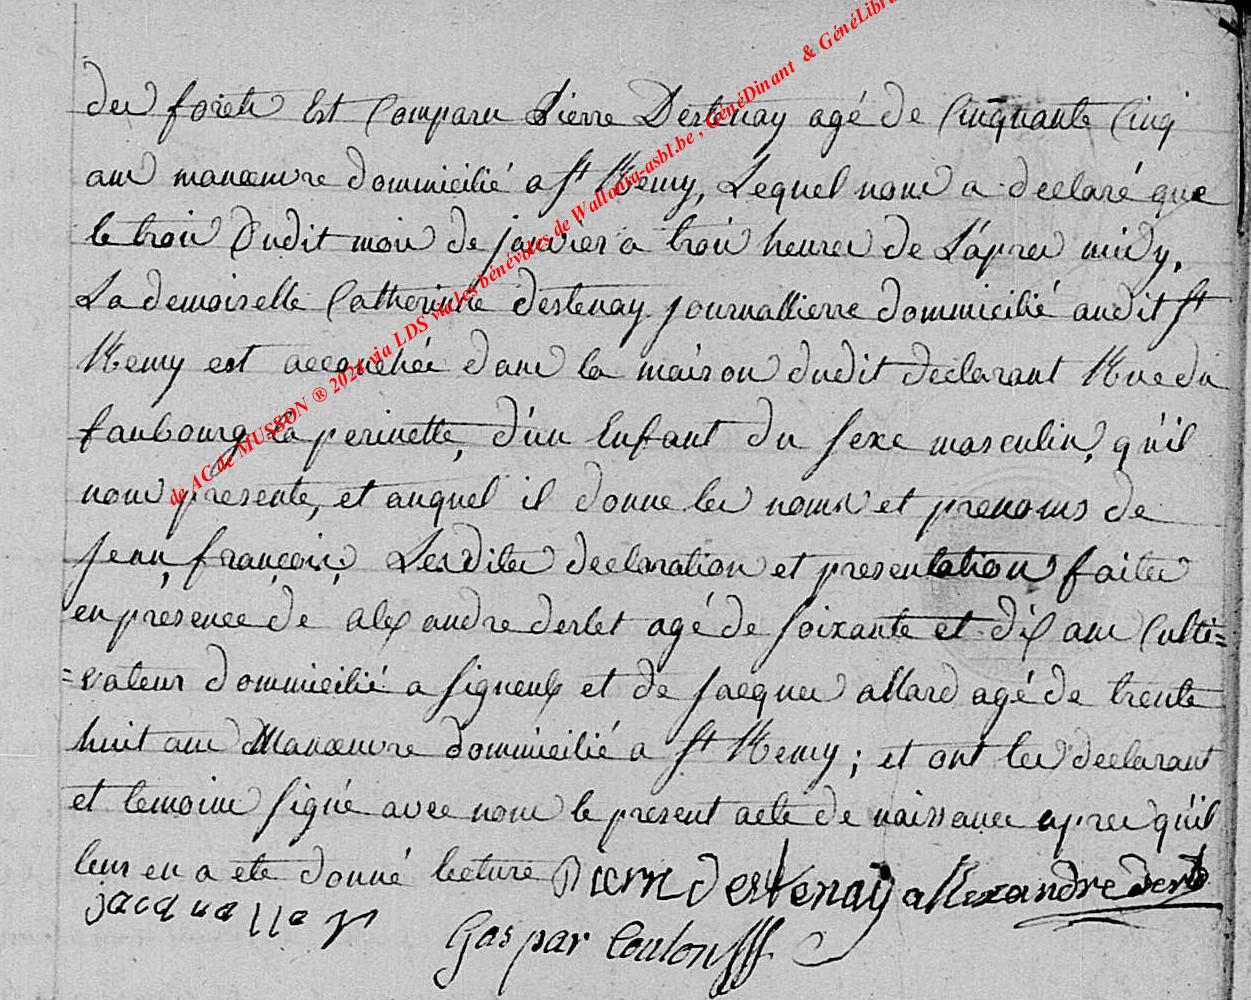 des forets Est Comparu Pierre Destenay agé de Cinquante Cinq
ans manœuvre dommicilié a St Remy, Lequel nous a declaré que
le trois dudit mois de janvier a trois heures de L'apres midy,
La demoiselle Catherine destenay journalliere dommicilié audit St
Remy est accouchée dans la maison dudit declarant Rue du
faubourg la perinette, d'un Enfant du sexe masculin, qu'il
nous presente, et auquel il donne les noms et prenoms de
jean, françois, Lesdites declaration et presentation faites
en présence de alexandre derlet agé de soixante et dix ans Culti=
=vateur dommicilié a signeulx et de jacques allard agé de trente
huit ans Manœuvre dommicilié a St Remy; et ont les declarant
et temoins signé avec nous le present acte de naissance apres qu'il
leur en a ete donné lecture pierre destenay allexandre derlet
jacque
Gaspar
de AC de MUSSON ® 2021 via LDS via les bénévoles de Wallonia-asbl.be , GénéDinant & GénéLibra